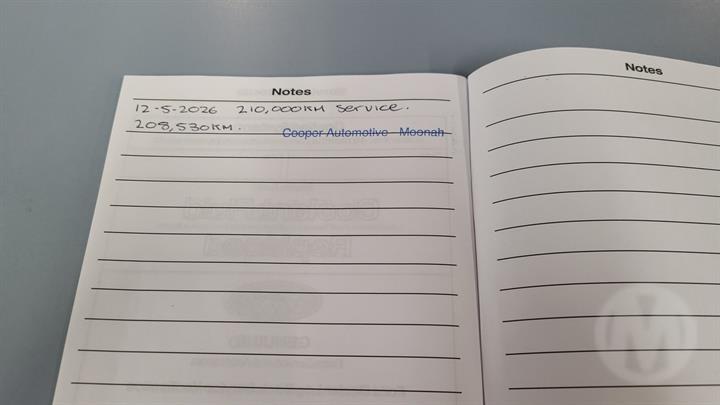 Notes
12-5-2026 210,000KM service.
208,530KM. Cooper Automotive Moonah
Notes